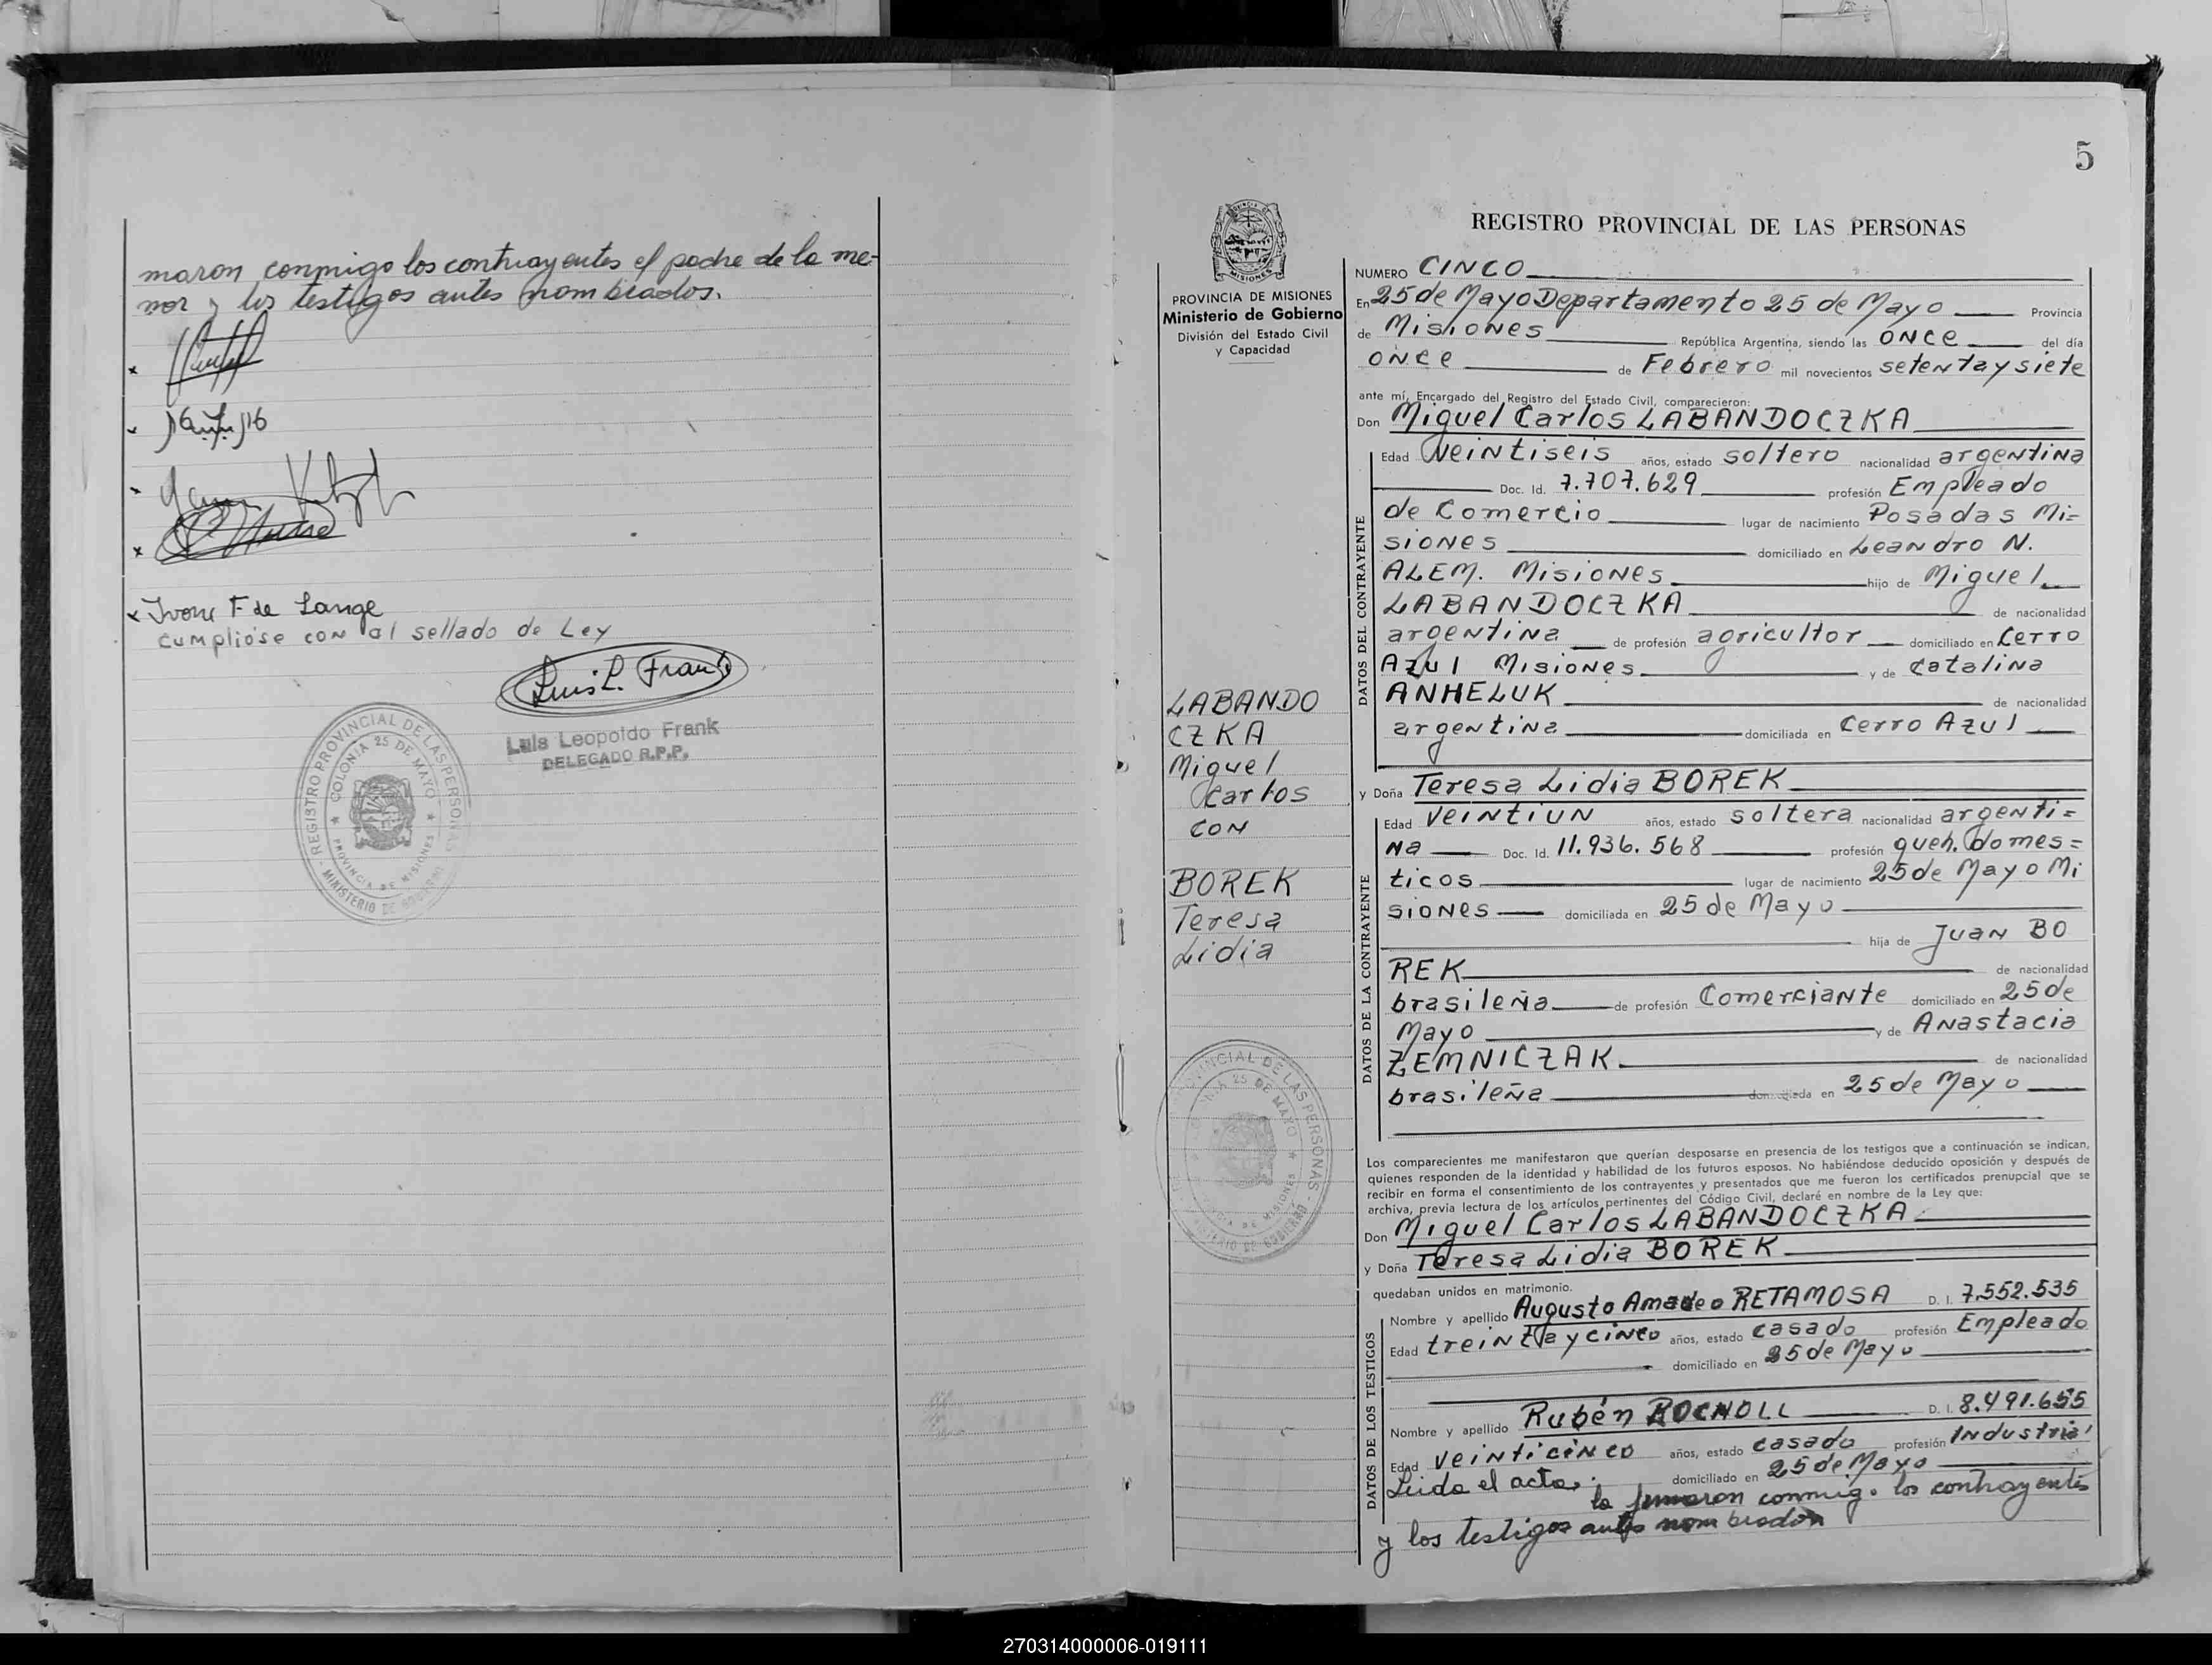 maron conmigo los contrayentes el padre de la me-
nor y los testigos antes nombrados.
x
x
x
x
x Ivone F de Lange
cumpliose con al sellado de Ley
Luis L. Frank
Luis Leopoldo Frank
DELEGADO R.P.P.
REGISTRO PROVINCIAL DE LAS PERSONAS
COLONIA 25 DE MAYO
PROVINCIA DE MISIONES
MINISTERIO DE GOBIERNO
5
MISIONES
PROVINCIA DE MISIONES
Ministerio de Gobierno
División del Estado Civil
y Capacidad
LABANDO
CZKA
Miguel
Carlos
CON
BOREK
Teresa
Lidia
REGISTRO PROVINCIAL DE LAS PERSONAS
NUMERO CINCO
En 25 de Mayo Departamento 25 de Mayo Provincia
de Misiones República Argentina, siendo las once del día
once de Febrero mil novecientos setenta y siete
ante mí, Encargado del Registro del Estado Civil, comparecieron:
Don Miguel Carlos LABANDOCZKA
DATOS DEL CONTRAYENTE
Edad Veintiseis años, estado soltero nacionalidad argentina
Doc. Id. 7.707.629 profesión Empleado
de Comercio lugar de nacimiento Posadas Mi=
siones domiciliado en Leandro N.
ALEM. Misiones hijo de Miguel
LABANDOCZKA de nacionalidad
argentina de profesión agricultor domiciliado en Cerro
Azul Misiones y de Catalina
ANHELUK de nacionalidad
argentina domiciliada en Cerro Azul
y Doña Teresa Lidia BOREK
DATOS DE LA CONTRAYENTE
Edad Veintiun años, estado soltera nacionalidad argenti=
na Doc. Id. 11.936.568 profesión queh. domes=
ticos lugar de nacimiento 25 de Mayo Mi
siones domiciliada en 25 de Mayo
hija de Juan BO
REK de nacionalidad
brasileña de profesión Comerciante domiciliado en 25 de
Mayo y de Anastacia
ZEMNICZAK de nacionalidad
brasileña domiciliada en 25 de Mayo
Los comparecientes me manifestaron que querían desposarse en presencia de los testigos que a continuación se indican,
quienes responden de la identidad y habilidad de los futuros esposos. No habiéndose deducido oposición y después de
recibir en forma el consentimiento de los contrayentes y presentados que me fueron los certificados prenupcial que se
archiva, previa lectura de los artículos pertinentes del Código Civil, declaré en nombre de la Ley que:
Don Miguel Carlos LABANDOCZKA
y Doña Teresa Lidia BOREK
quedaban unidos en matrimonio.
DATOS DE LOS TESTIGOS
Nombre y apellido Augusto Amadeo RETAMOSA D. I. 7.552.535
Edad treinta y cinco años, estado casado profesión Empleado
domiciliado en 25 de Mayo
Nombre y apellido Rubén ROCHOLL D. I. 8.491.655
Edad Veinticinco años, estado casado profesión Industrial
domiciliado en 25 de Mayo
Leida el acta, la firmaron conmigo los contrayentes
y los testigos antes nombrados
270314000006-019111